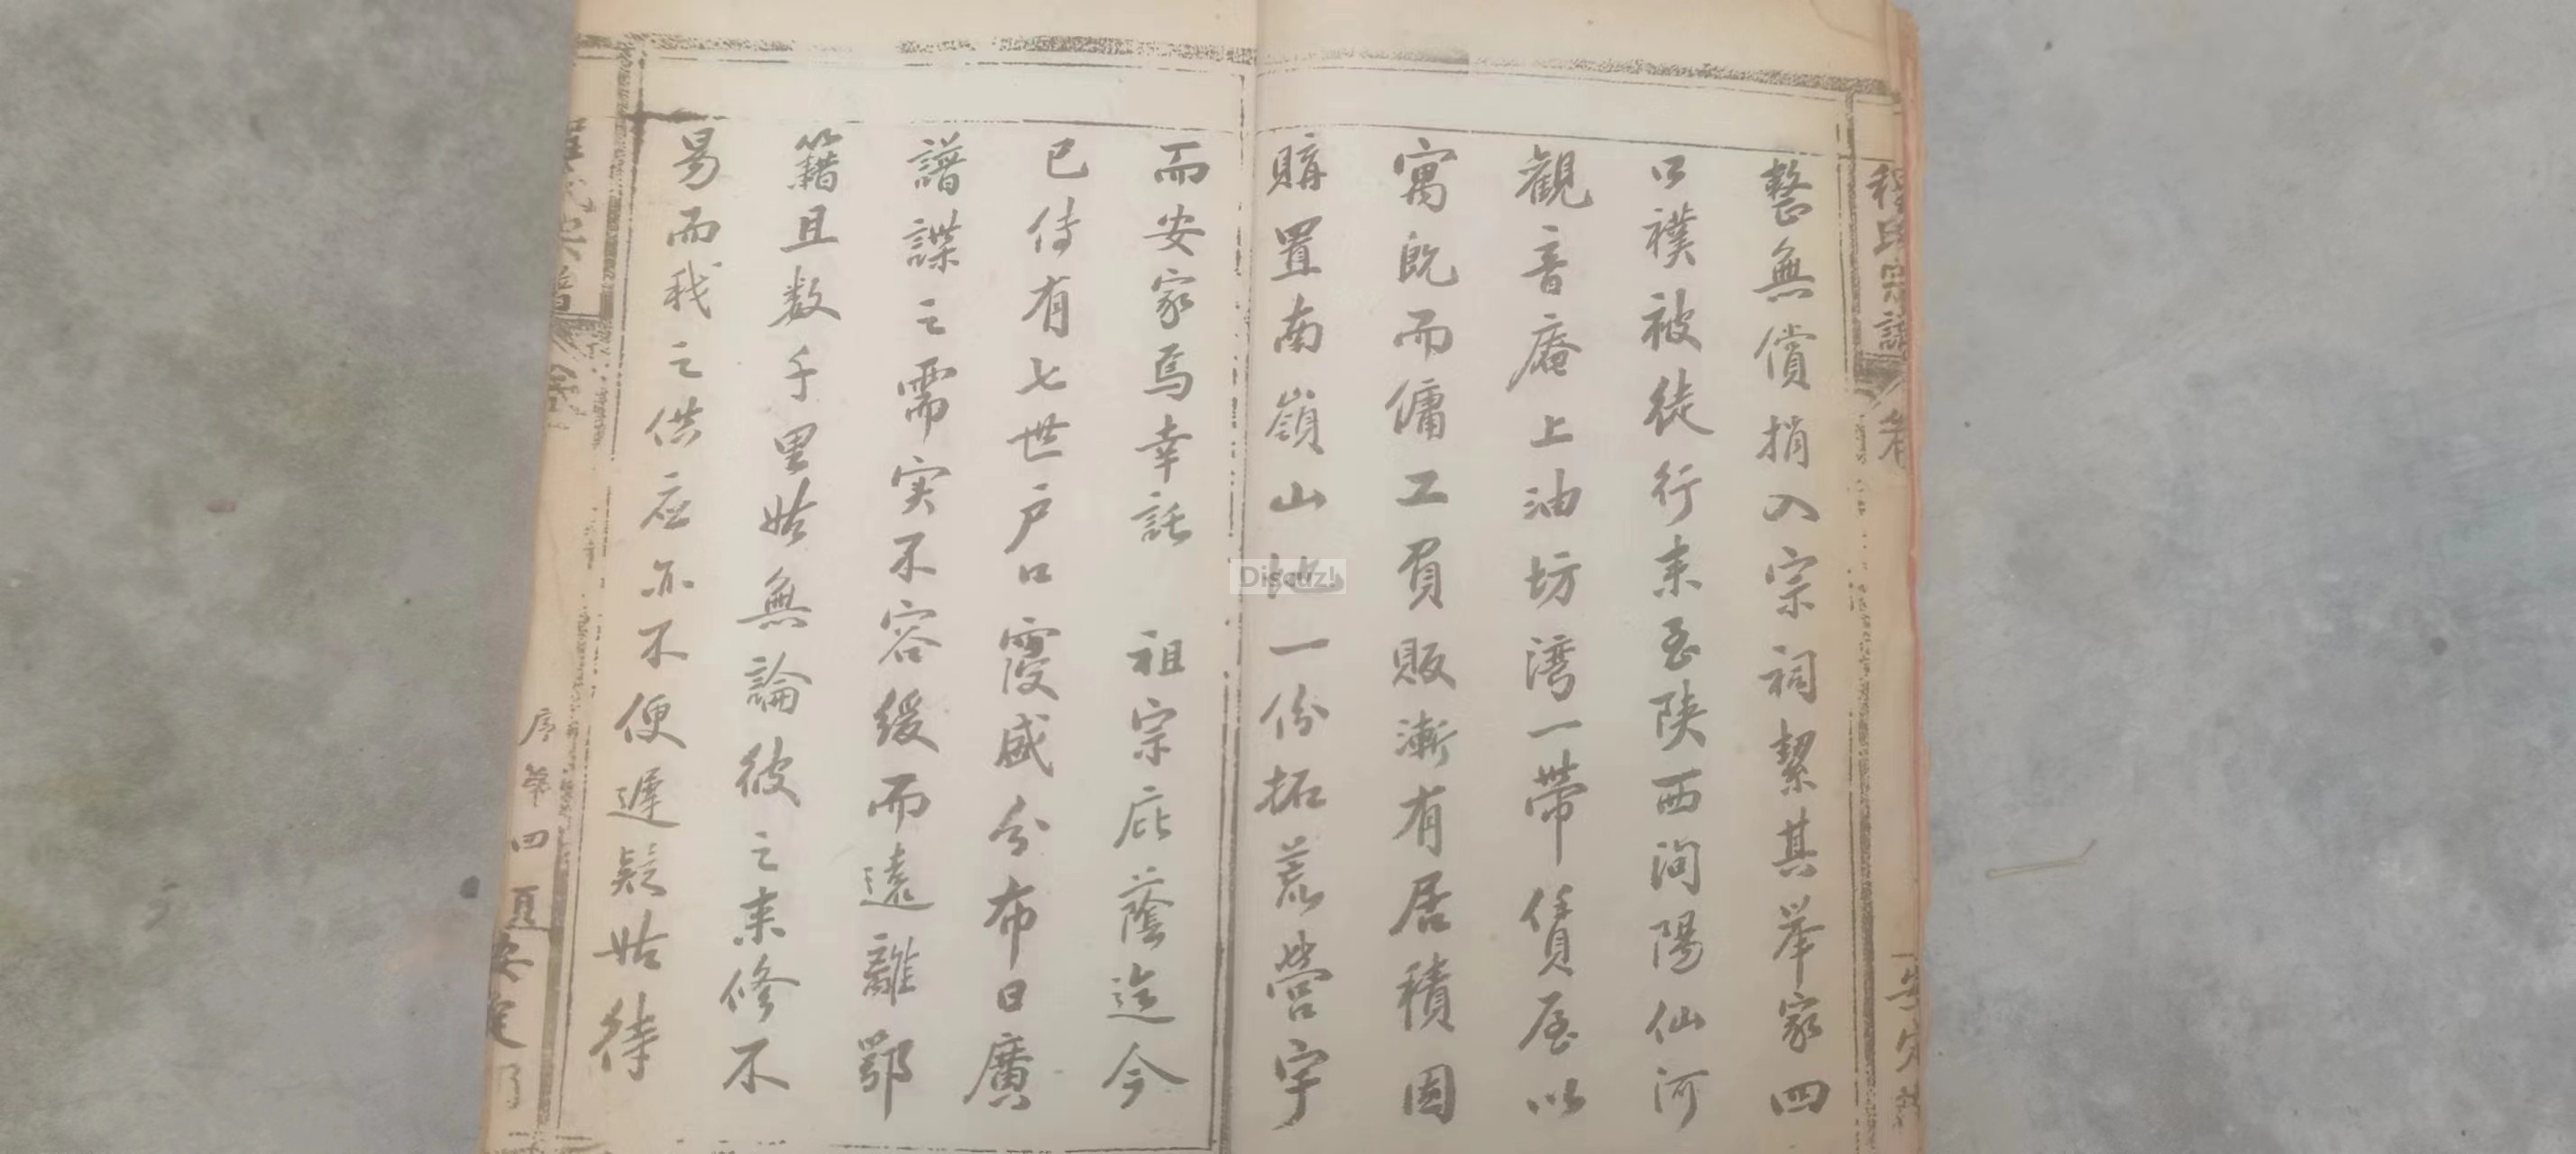 整無償捐入宗祠挈其举家四
口襆被徒行来至陕西洵陽仙河
觀音庵上油坊湾一带賃屋以
寓既而傭工負販漸有居積因
購置南嶺山地一份拓荒營宇
而安家焉幸託 祖宗庇蔭迄今
已侍有七世户口寖盛分布日廣
譜諜之需实不容缓而遠離鄂
籍且数千里姑無論彼之来修不
易而我之供应亦不便遲疑姑待
序第四頁
Discuz!